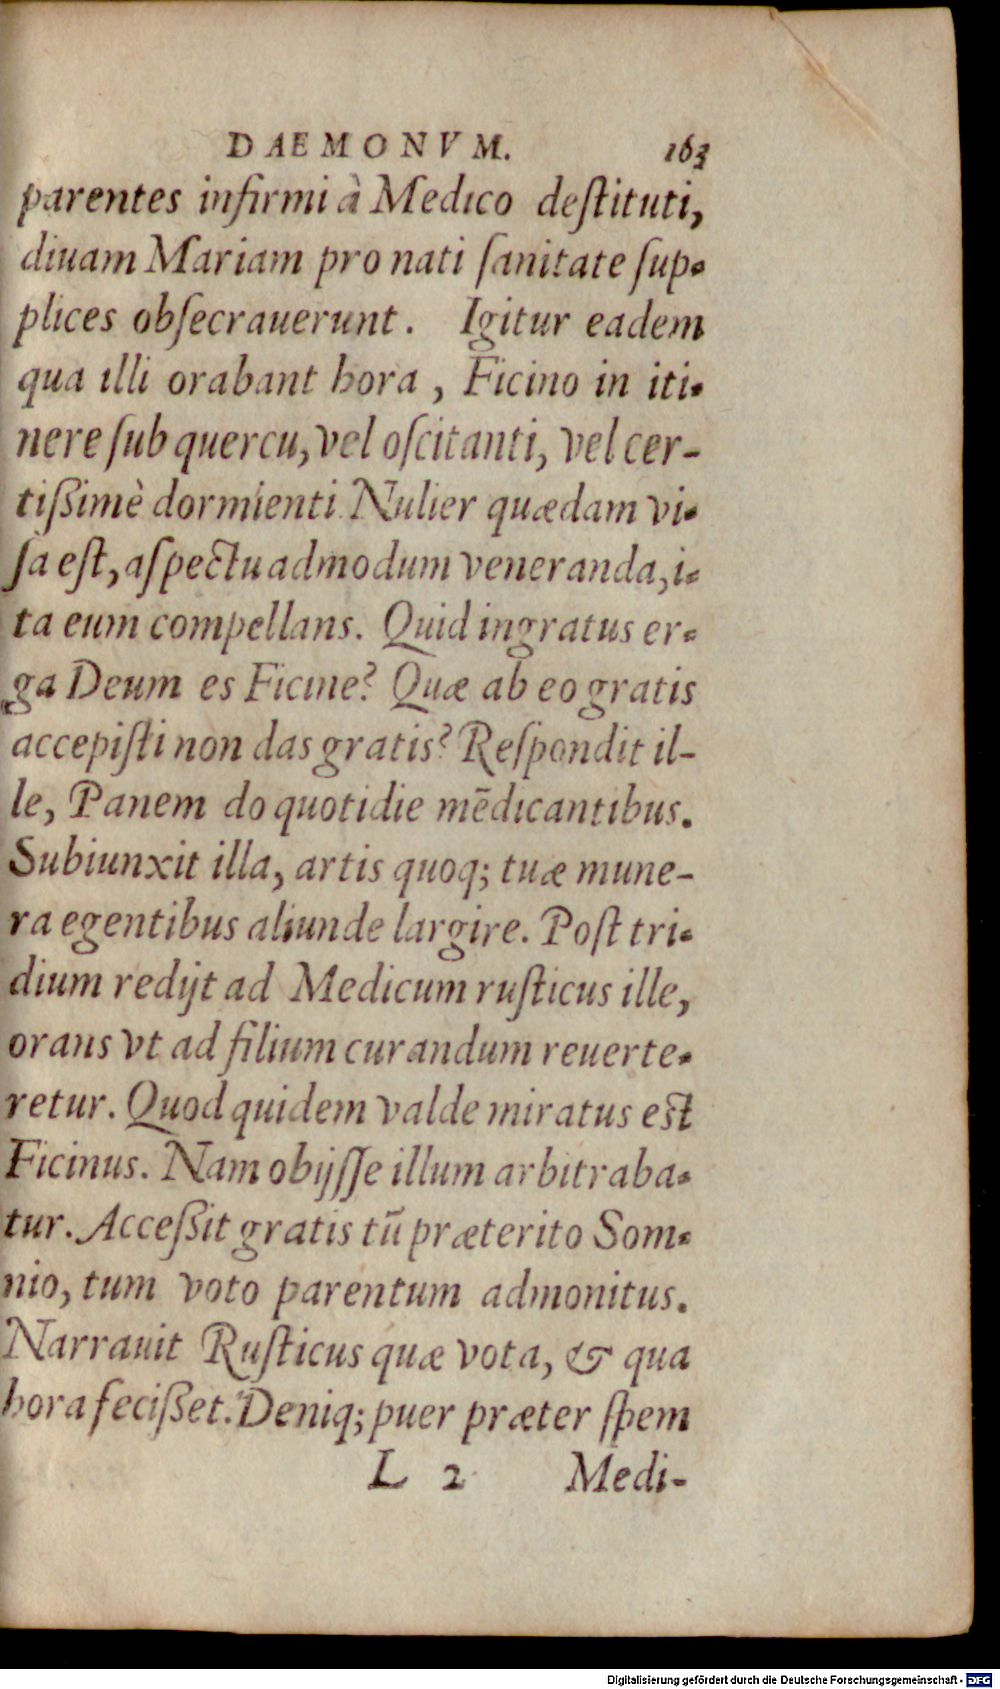 DAEMONVM. 163
parentes infirmi à Medico deſtituti,
diuam Mariam pro nati ſanitate ſup-
plices obſecrauerunt. Igitur eadem
qua illi orabant hora, Ficino in iti-
nere ſub quercu, vel oſcitanti, vel cer-
tißimè dormienti Nulier quædam vi-
ſa eſt, aſpectu admodum veneranda, i-
ta eum compellans. Quid ingratus er-
ga Deum es Ficine? Quæ ab eo gratis
accepiſti non das gratis? Reſpondit il-
le, Panem do quotidie mēdicantibus.
Subiunxit illa, artis quoq; tuæ mune-
ra egentibus aliunde largire. Poſt tri-
dium redijt ad Medicum ruſticus ille,
orans vt ad filium curandum reuerte-
retur. Quod quidem valde miratus eſt
Ficinus. Nam obijſſe illum arbitraba-
tur. Acceßit gratis tū præterito Som-
nio, tum voto parentum admonitus.
Narrauit Ruſticus quæ vota, & qua
hora feciſſet. Deniq; puer præter ſpem
L 2 Medi-
Digitalisierung gefördert durch die Deutsche Forschungsgemeinschaft - DFG